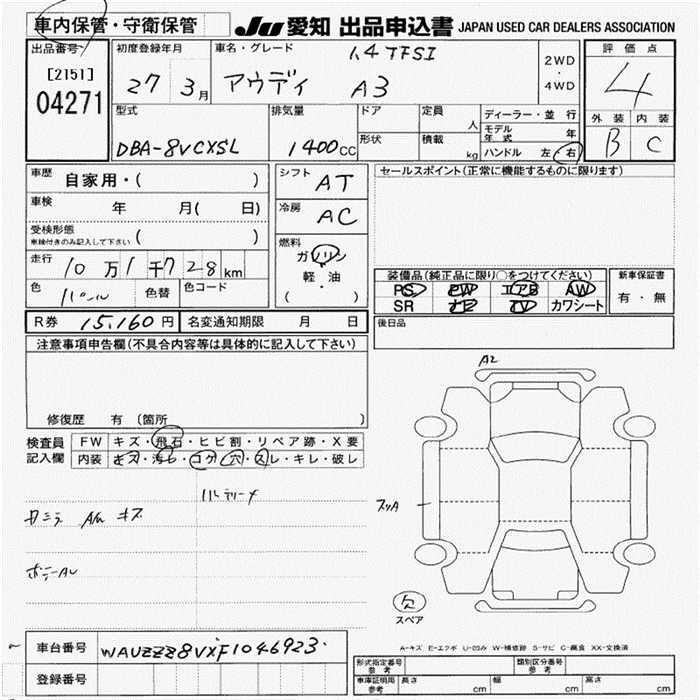 車内保管・守衛保管 JU 愛知 出品申込書 JAPAN USED CAR DEALERS ASSOCIATION
出品番号 初度登録年月 車名・グレード 1.4 TFSI 2WD・4WD 評価点
[2151] 04271 27 3月 アウディ A3 4
型式 排気量 ドア 定員 人 ディーラー・並行 外装 内装
モデル年式 年
DBA-8VCXSL 1400CC 形状 積載 kg ハンドル 左・右 B C
車歴 自家用・( ) シフト AT セールスポイント(正常に機能するものに限ります)
車検 年 月( 日) 冷房 AC
受検形態 車検付きのみ記入して下さい ( ) 燃料 ガソリン・軽・油 ( )
走行 10万1千728km 装備品(純正品に限り○をつけてください) 新車保証書
色 パール 色替 色コード PS PW エアB AW 有・無
SR ナビ TV カワシート
R券 15,160円 名変通知期限 月 日 後日品
注意事項申告欄(不具合内容等は具体的に記入して下さい)
修復歴 有 (箇所 )
検査員記入欄 FW キズ・飛石・ヒビ割・リペア跡・X要
内装 キズ・汚レ・コゲ・穴・スレ・キレ・破レ
A2
カミラ キズ
スリA
欠
スペア
A-キズ E-エクボ U-凹み W-補修跡 S-サビ C-腐食 XX-交換済
車台番号 WAUZZZ8VXF1046923
登録番号
形式指定番号 参考 類別区分番号 参考
車庫証明用 参考 長さ cm 幅 cm 高さ cm